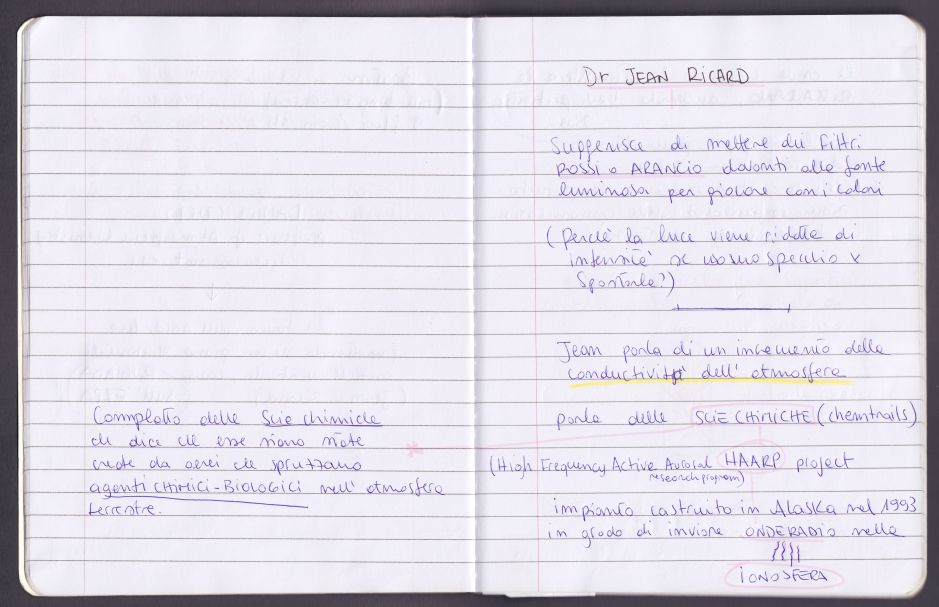 Complotto delle Scie chimiche
che dice che esse siano state
create da aerei che spruzzano
agenti CHIMICI-BIOLOGICI nell' atmosfera
terrestre.
Dr JEAN RICARD
Suggerisce di mettere dei filtri
ROSSI o ARANCIO davanti alla fonte
luminosa per giocare con i colori
(Perchè la luce viene ridotta di
intensità se usano specchio x
Spostarla?)
Jean parla di un incremento della
conductività dell' atmosfera
parla delle SCIE CHIMICHE (chemtrails)
*
(High Frequency Active Auroral HAARP project
research program)
impianto costruito in Alaska nel 1993
in grado di inviare ONDE RADIO nella
IONOSFERA